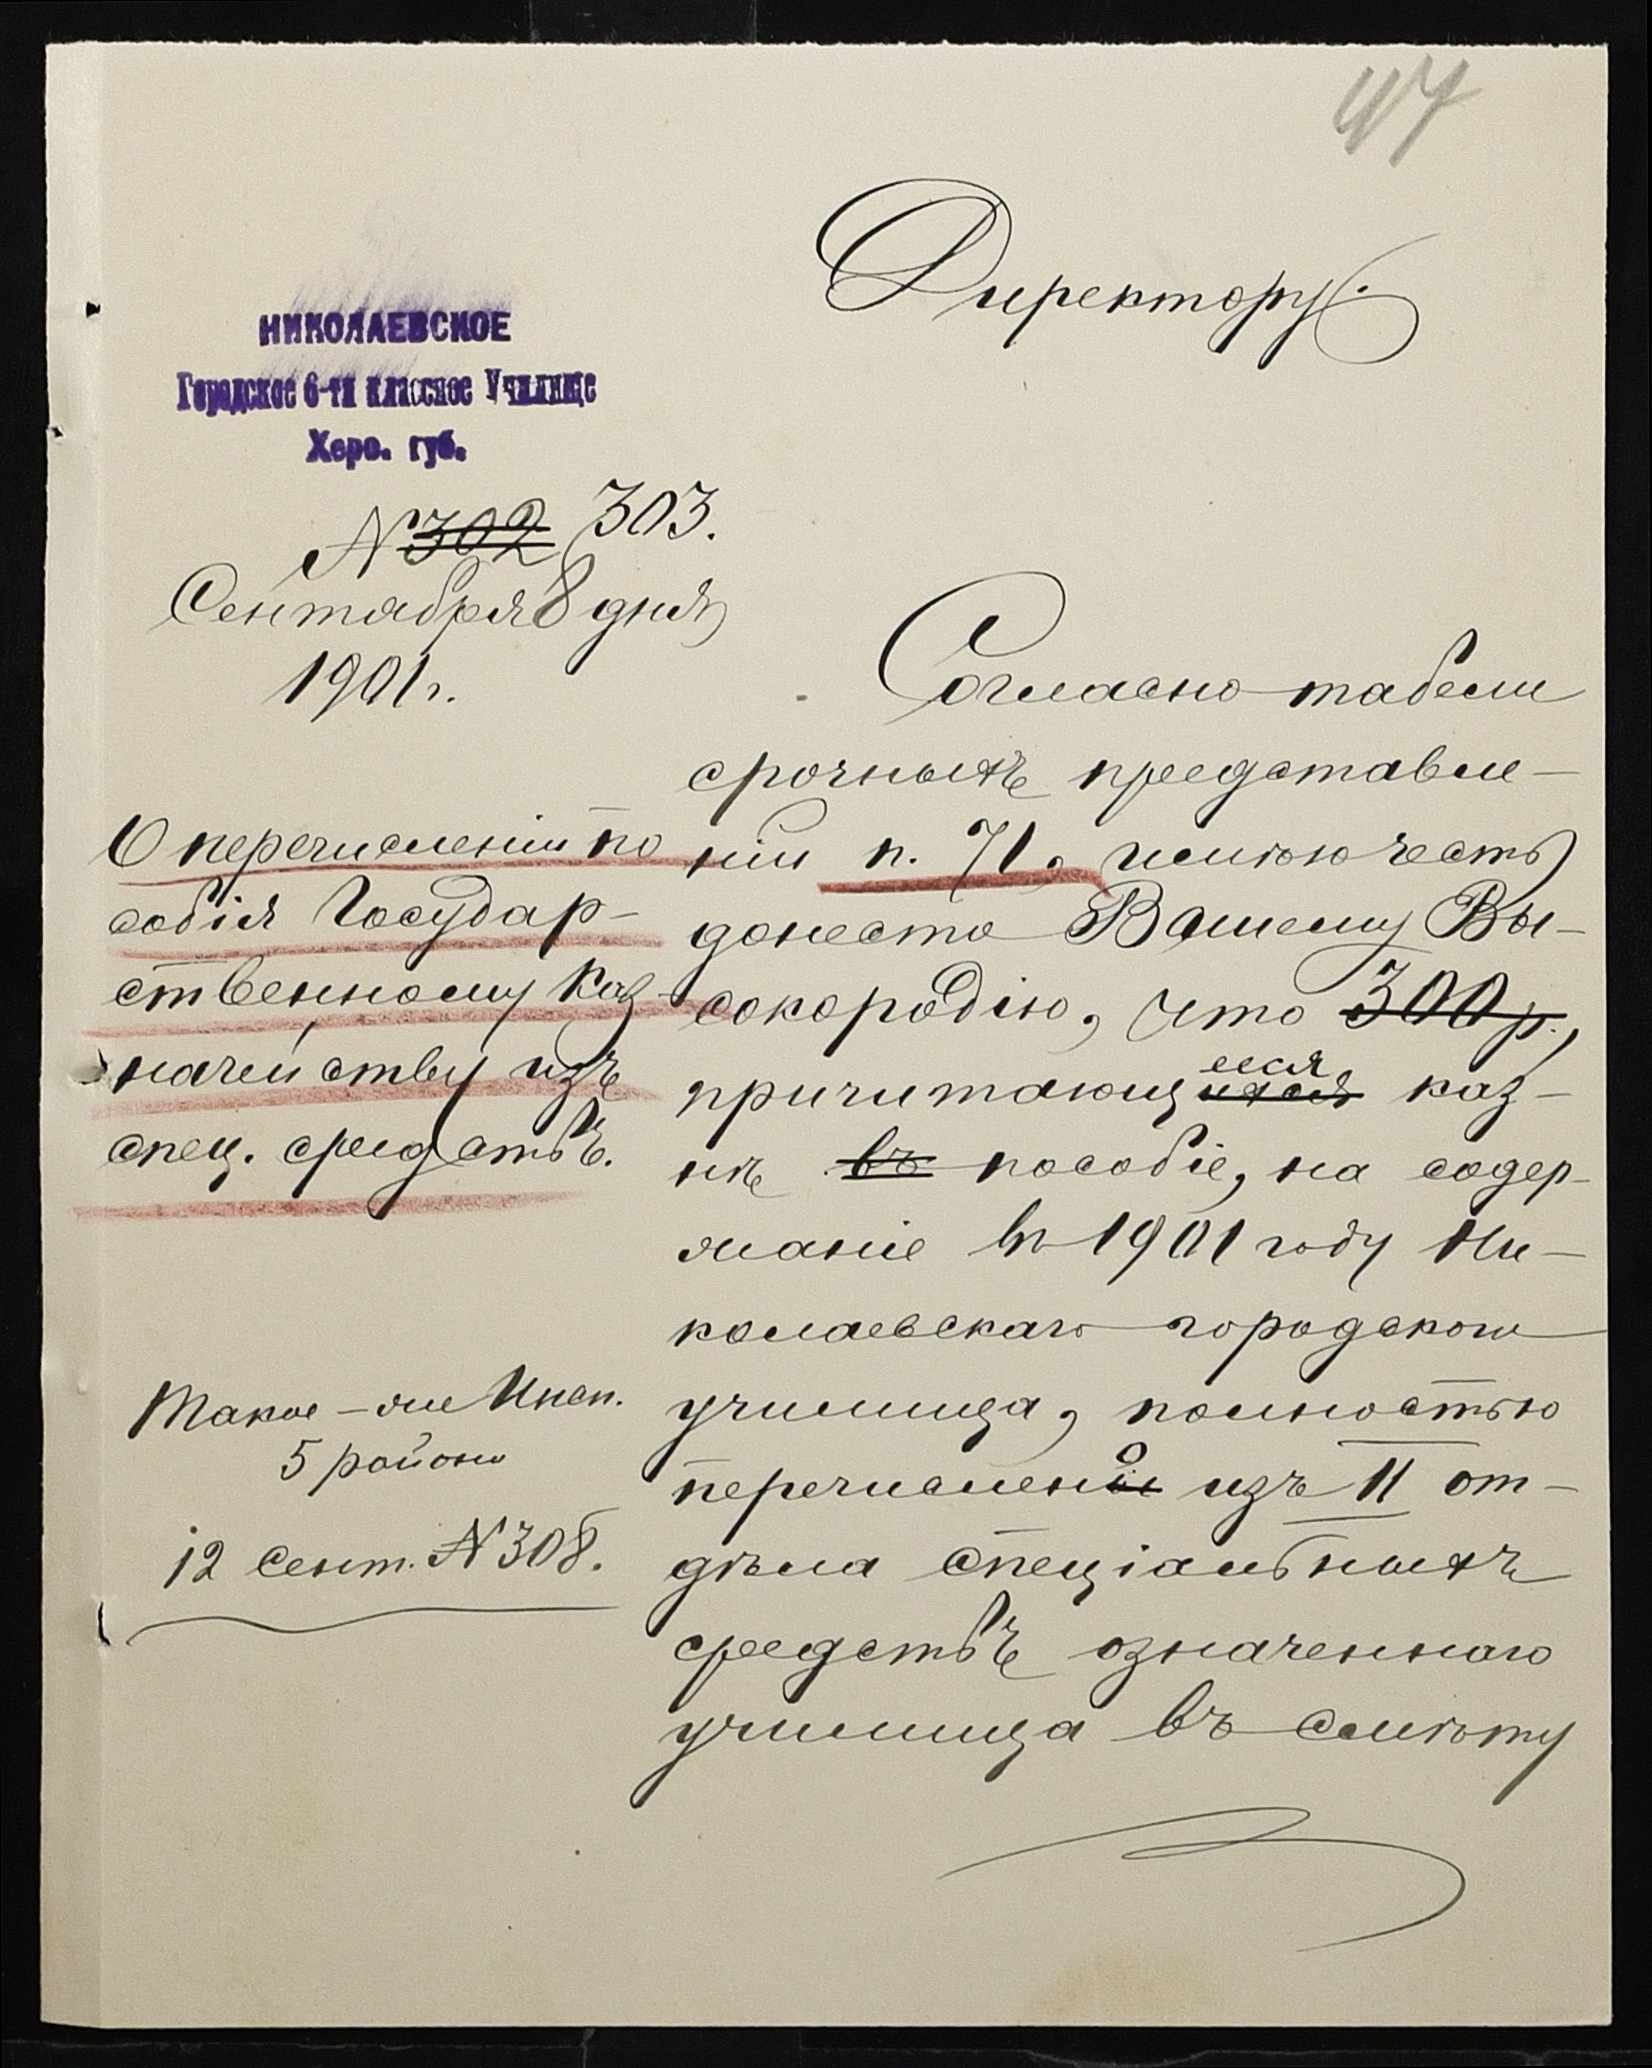 47
Директору.
НИКОЛАЕВСКОЕ
Городское 6-ти классное Училище
Херс. губ.
№ 302 303.
Сентября 8 дня
1901 г.
О перечисленіи по
собія Государ-
ственному Каз-
начейству изъ
спец. средствъ.
Такое-же Инсп.
5 района
12 Сент. № 308.
Согласно табели
срочныхъ представле-
ній п. 71, имѣю честь
донести Вашему Вы-
сокородію, что 300 р.,
причитающихся ееся каз-
нѣ въ пособіе, на содер-
жаніе въ 1901 году Ни-
колаевскаго городского
училища, полностью
перечислены о изъ II от-
дѣла спеціальныхъ
средствъ означеннаго
училища въ смѣту